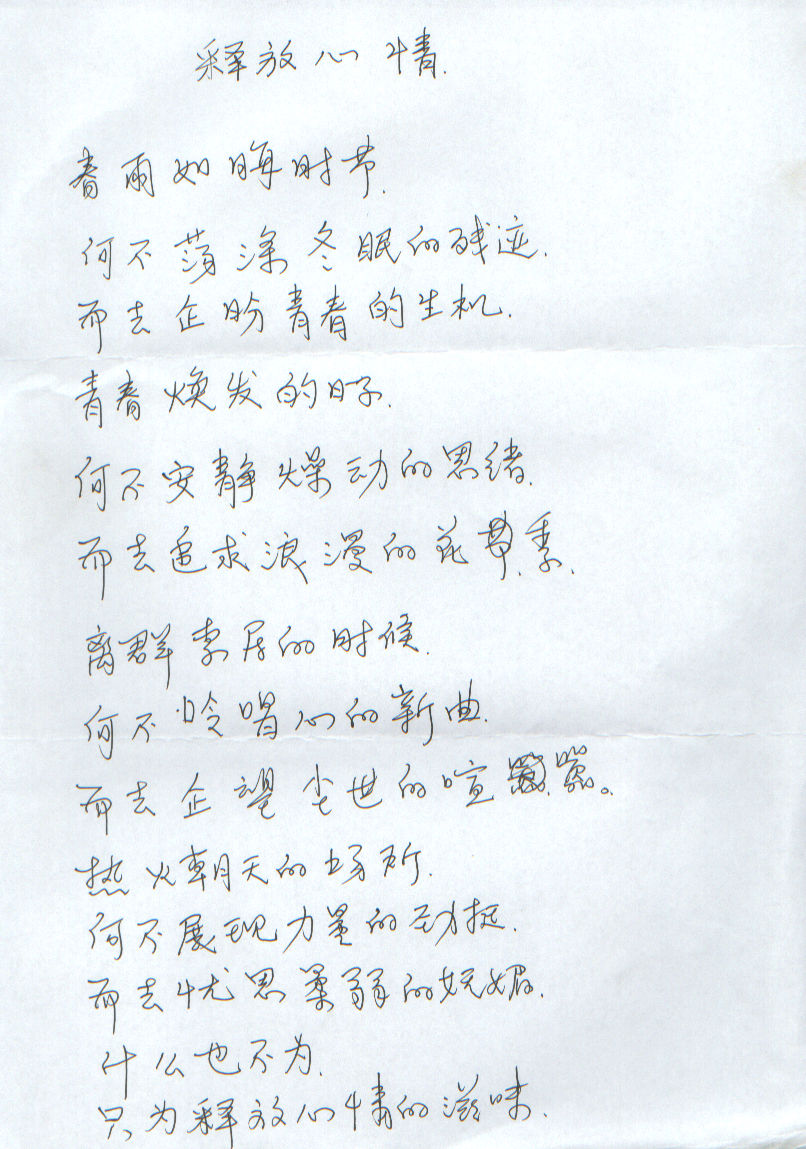 释放心情.
春雨如晦时节.
何不荡涤冬眠的残迹.
而去企盼青春的生机.
青春焕发的日子.
何不安静燥动的思绪.
而去追求浪漫的花季.
离群索居的时候.
何不吟唱心的新曲.
而去企望尘世的喧嚣。
热火朝天的场所.
何不展现力量的劲挺.
而去忧思柔弱的妩媚.
什么也不为.
只为释放心情的滋味.